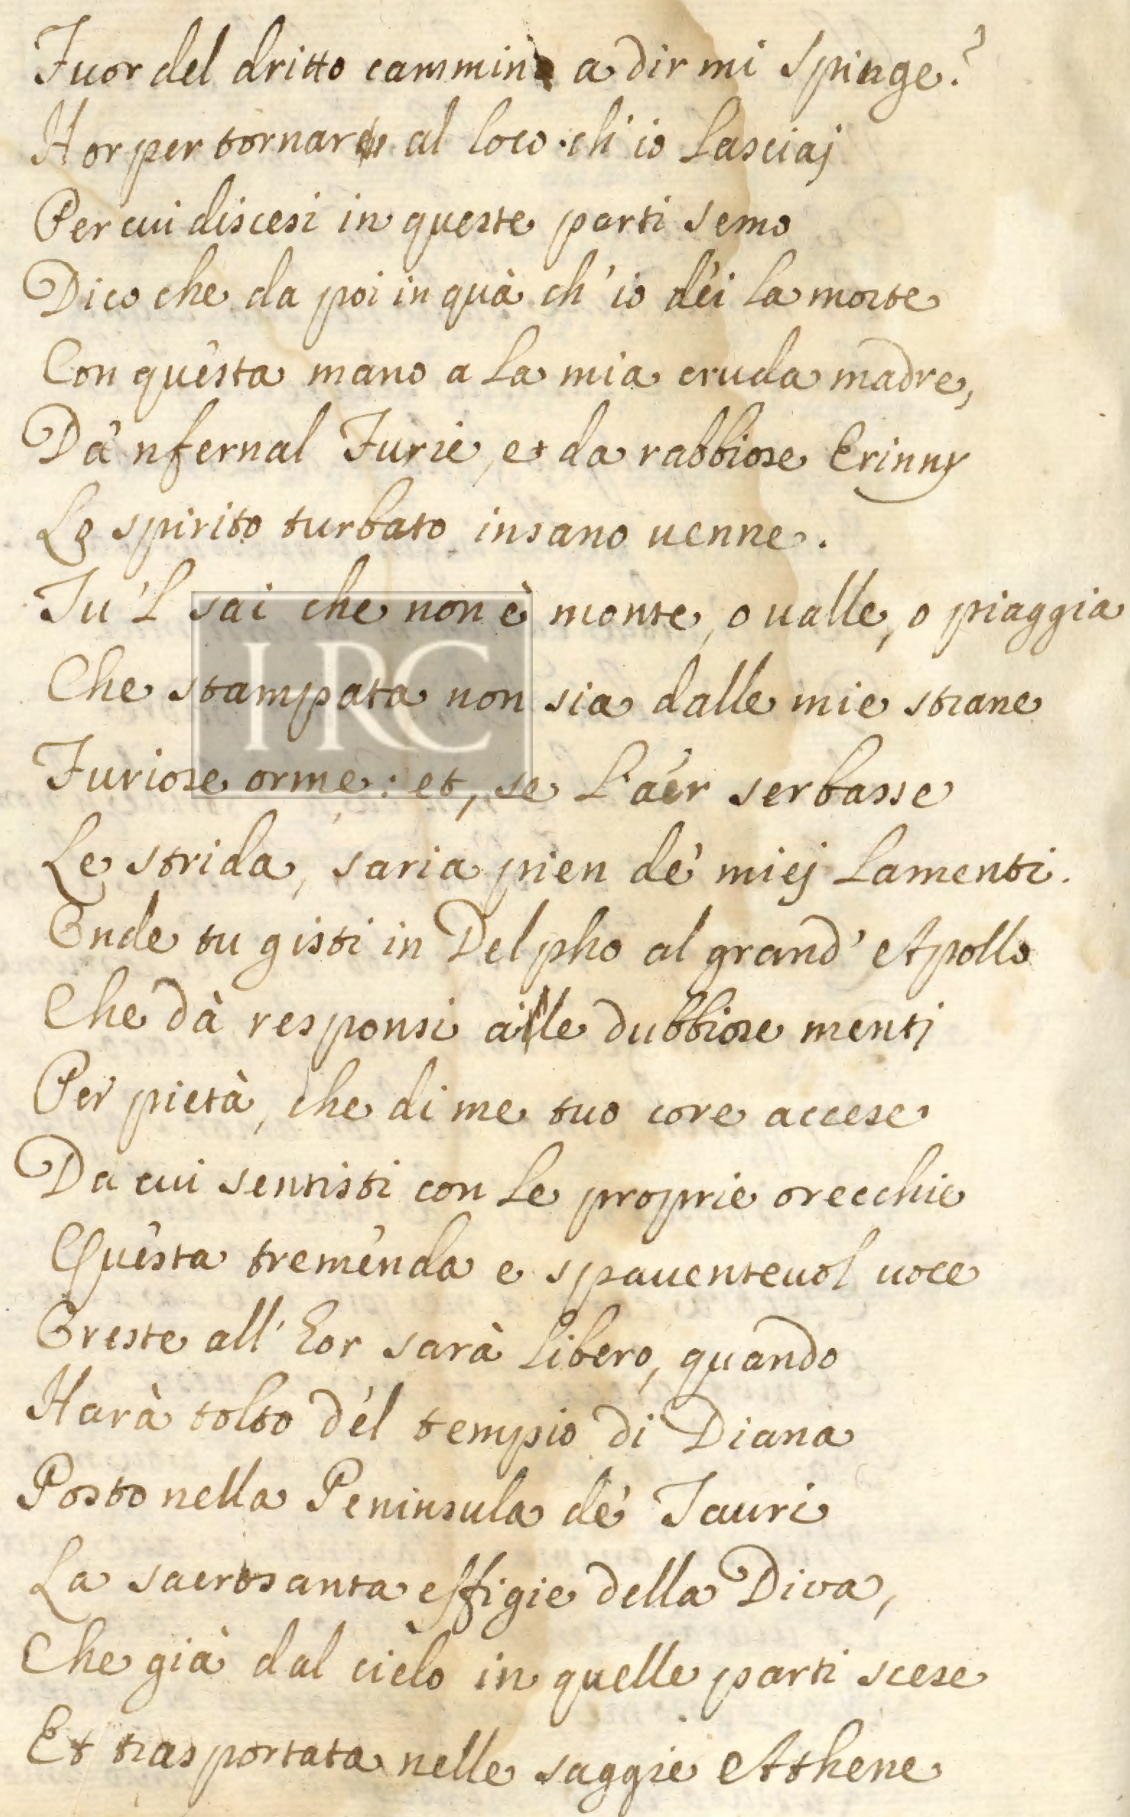 Fuor del dritto cammino a dir mi spinge?
Hor per tornar al loco ch'io lasciaj
Per cui discesi in queste parti semo
Dico che da poi in quà ch'io déi la morte
Con quésta mano a la mia cruda madre,
Da 'nfernal Furie, et da rabbiose Erinny
Lo spirito turbato insano venne.
Tu 'l sai che non è monte, o valle, o piaggia
Che stampata non sia dalle mie strane
Furiose orme: et, se l'aér serbasse
Le strida, saria pien de' miej lamenti.
Onde tu gisti in Delpho al grand' Apollo
Che dà responsi alle dubbiose menti
Per pietà, che di me tuo core accese
Da cui sentisti con le proprie orecchie
Quésta treménda e spaventevol voce
Oreste all'hor sarà libero, quando
Harà tolto dél tempio di Diana
Posto nella Peninsula de' Tauri
La sacrosanta effigie della Diva,
Che già dal cielo in quelle parti scese
Et trasportata nelle saggie Athene
HRC